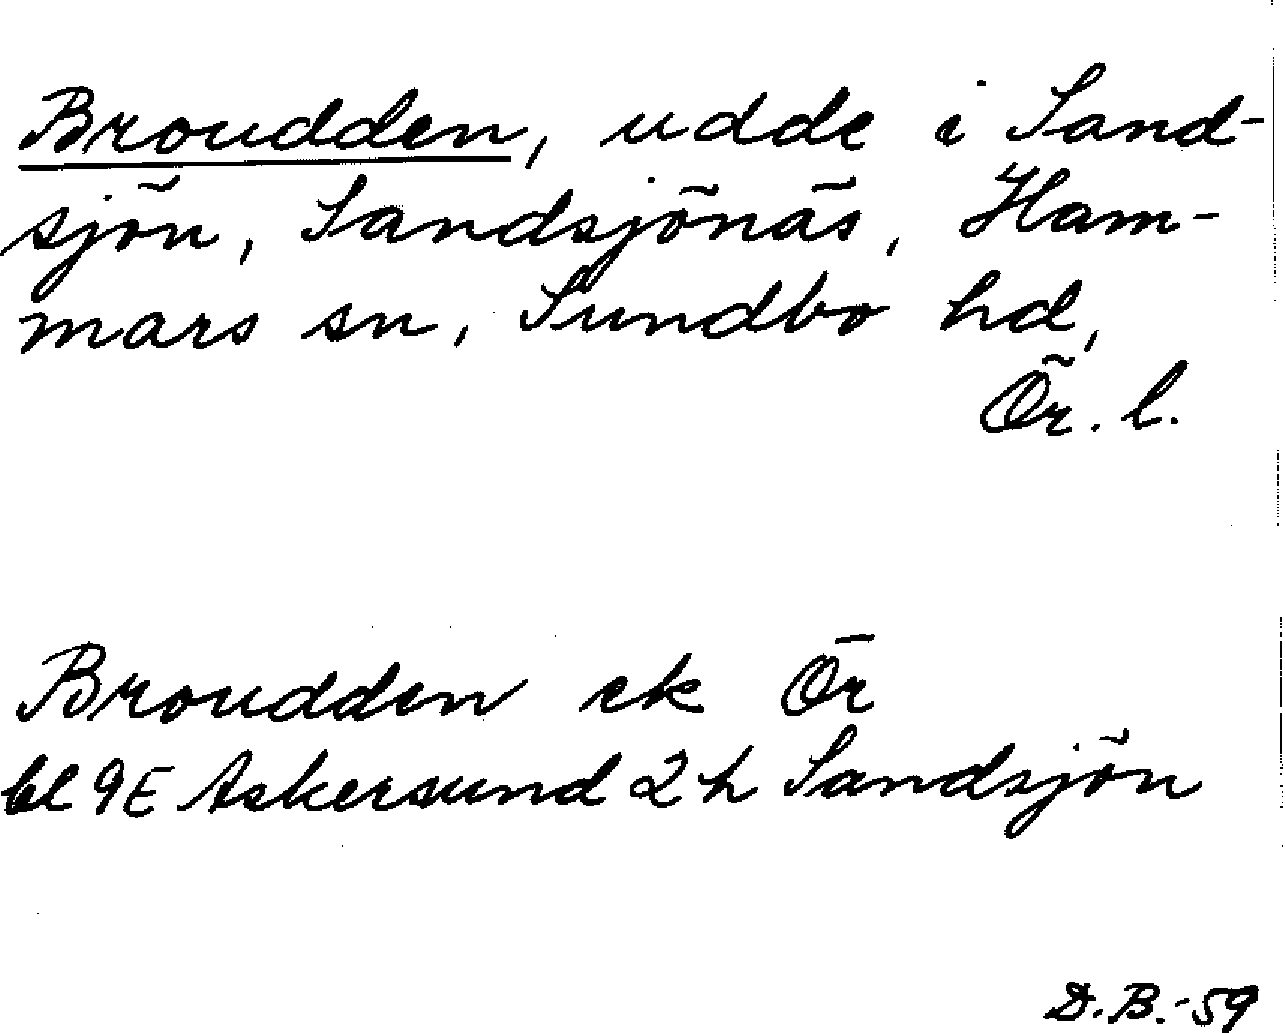 Broudden, udde i Sand-
sjön, Sandsjönäs, Ham-
mars sn, Sundbo hd,
Ör. l.
Broudden ek Ör
bl 9E Askersund 2 h Sandsjön
D.B.-59